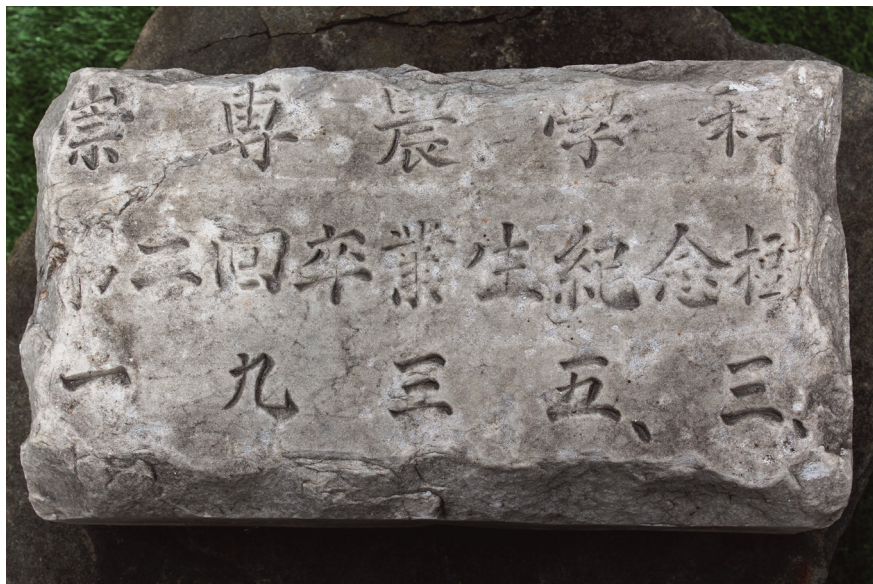 崇専農学科
第二回卒業生紀念樹
一九三五、三、